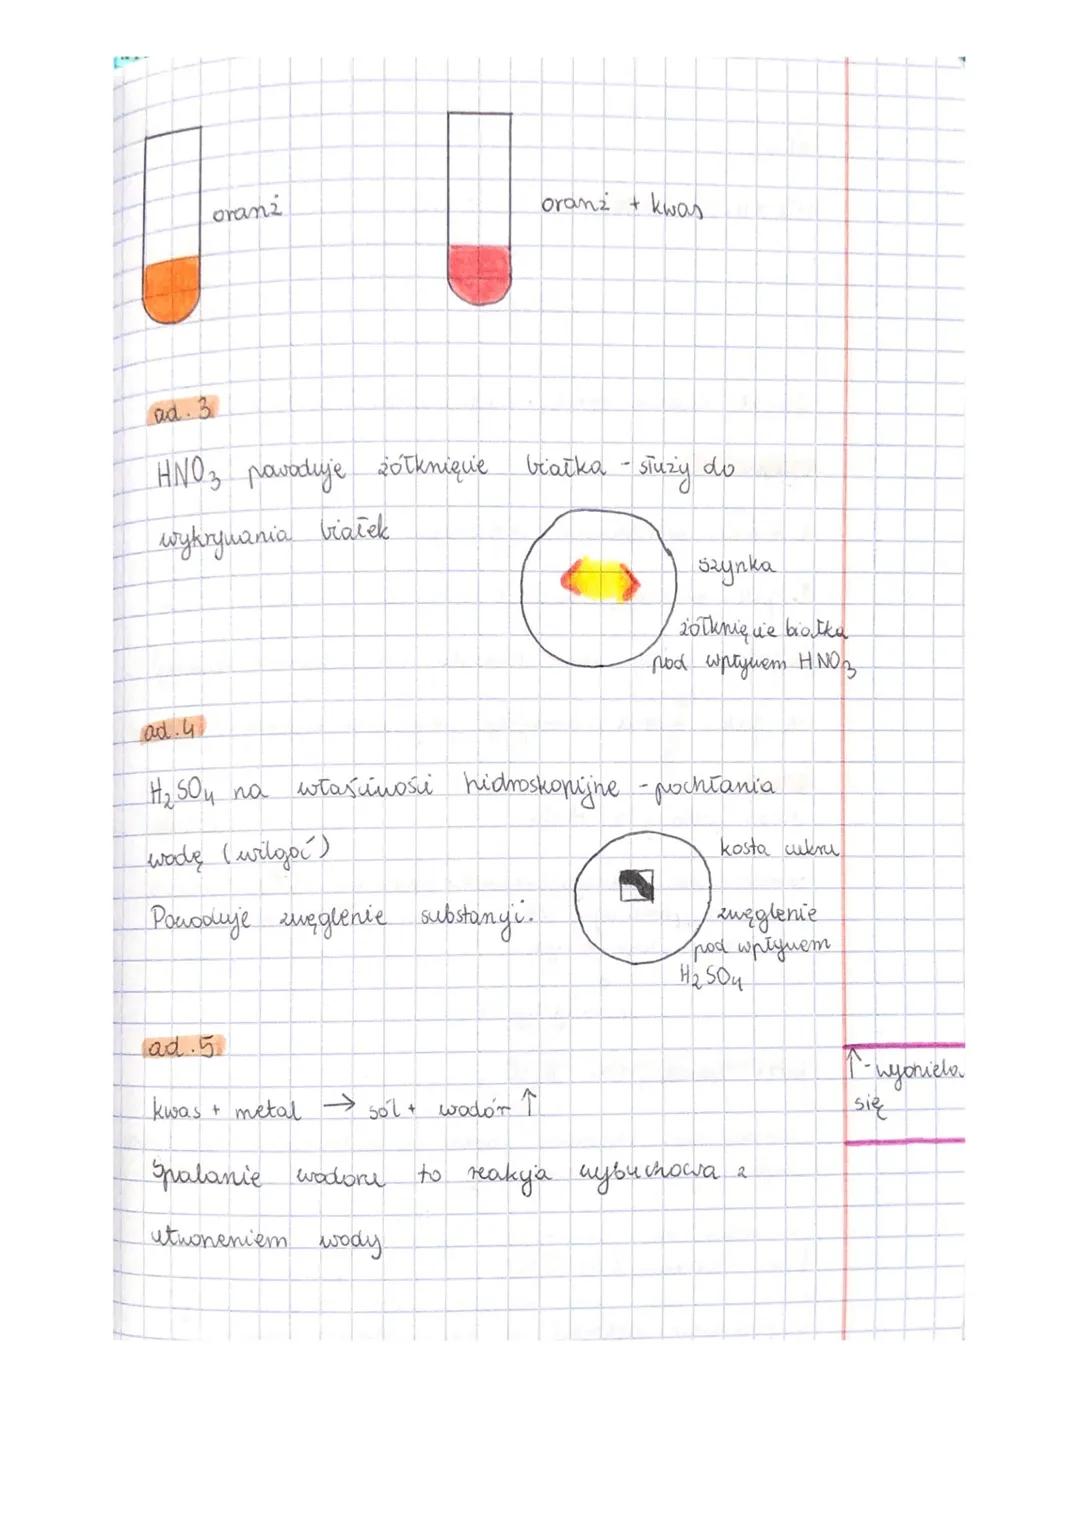 oranż
oranż + kwas
ad. 3
HNO3 powoduje żółknięcie białka - służy do
wykrywania białek
szynka
żółknięcie białka
pod wpływem HNO3
ad. 4
H2SO4 na właściwości hidroskopijne - pochłania
wodę (wilgoć)
kosta cukru
Powoduje zwęglenie substancji.
zwęglenie
pod wpływem
H2SO4
ad. 5
↑ - wydziela
się
kwas + metal → sól + wodór ↑
Spalanie wodoru to reakcja wybuchowa z
utworzeniem wody